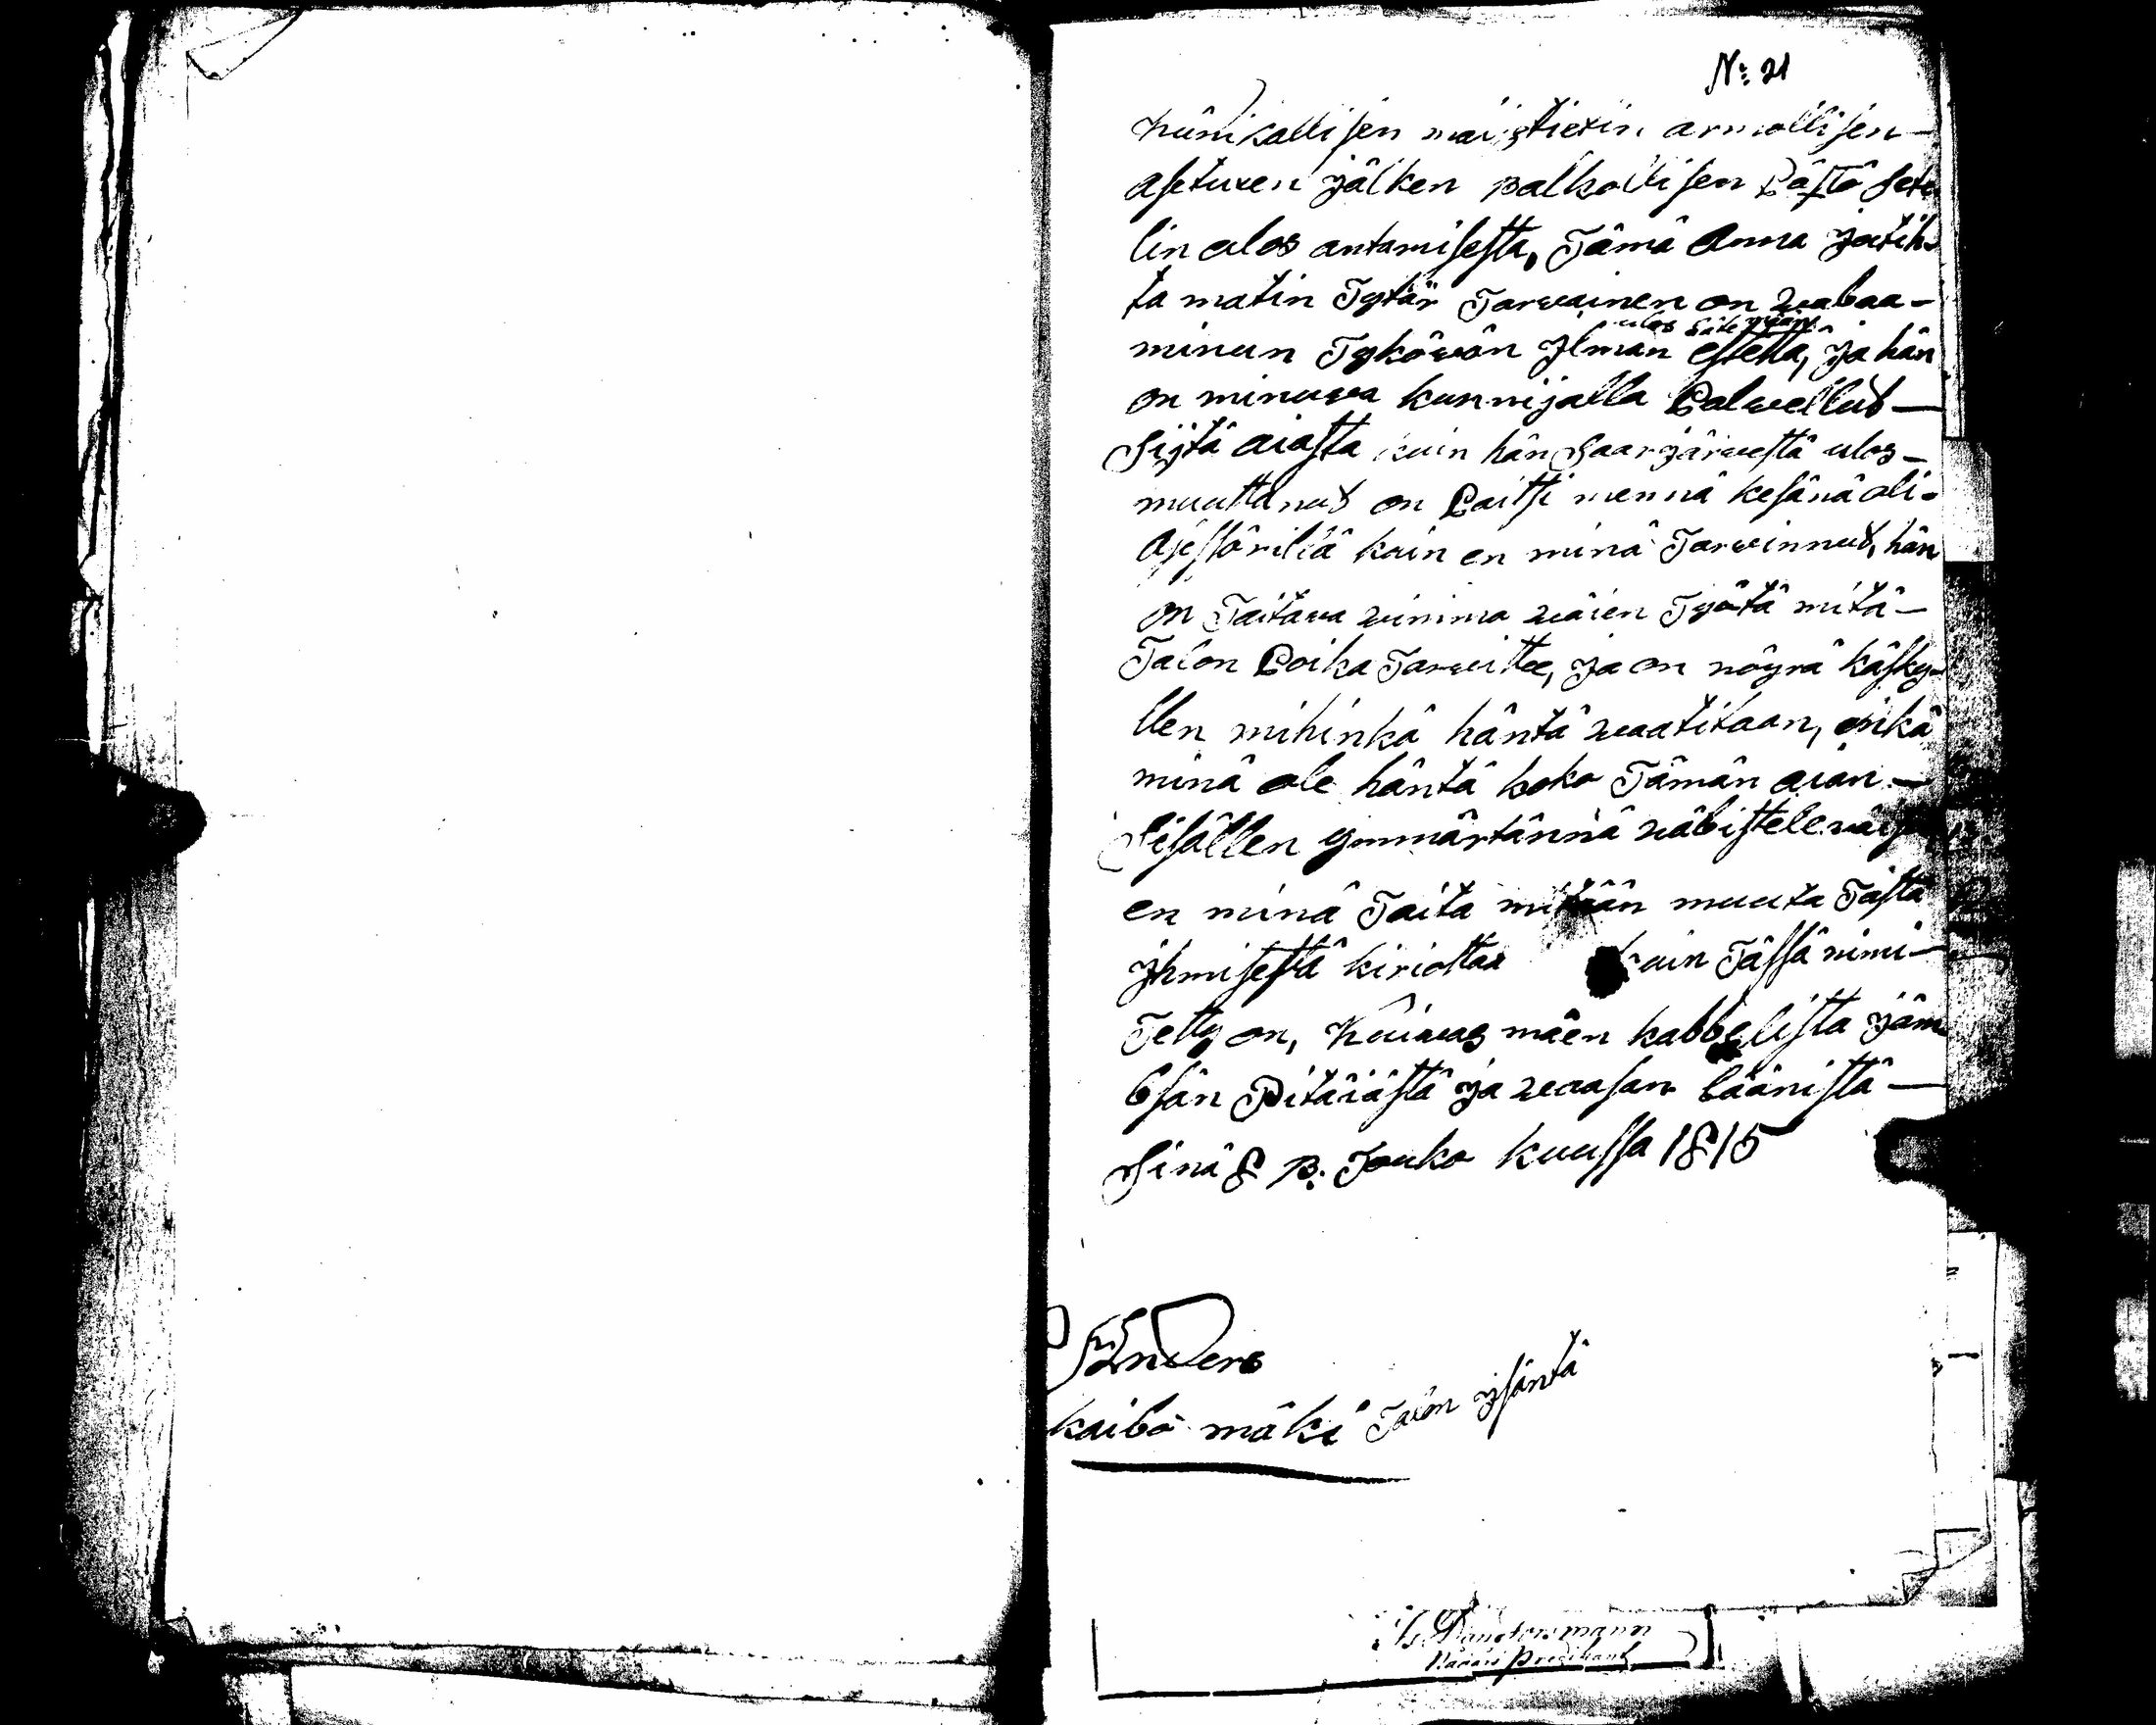 No: 21
Küni kallisen maijstietin armollisen
asetuxen jälken palkollisen Päsÿö sete
lin ulos antamisesta, Tämä Anna
ta matin Tytär Tarwainen on wabaa
minun Tyköwön Ylman estettä, ja hän
ulos
on minuwa kunnijalla Palwellud
Sijtä aiasta kuin hän Saarjärwestä ulos
muuttanud on Paitsi mennä kesänä oli
kuin en minä Tarwinnud, hän
on Taitawa wimma wäien Tyätä mitä
Talon Poika Tarwittee, ja on nöyrä käsky
llen mihinkä häntä waatitaan, enkä
minä ole häntä koko Tämän aian
Sisällen ymmärtännä
en minä Taita mitään muuta Tästä
yhmisestä kiriottaa kuin Tässä nimi
Tetty on, Kuiwas mäen kabbelista jäm
bsän Pitäiästä ja waasan läänistä
Sinä 8 p. Touko kuussa 1815
Anders
kaibo mäki Talon ysäntä